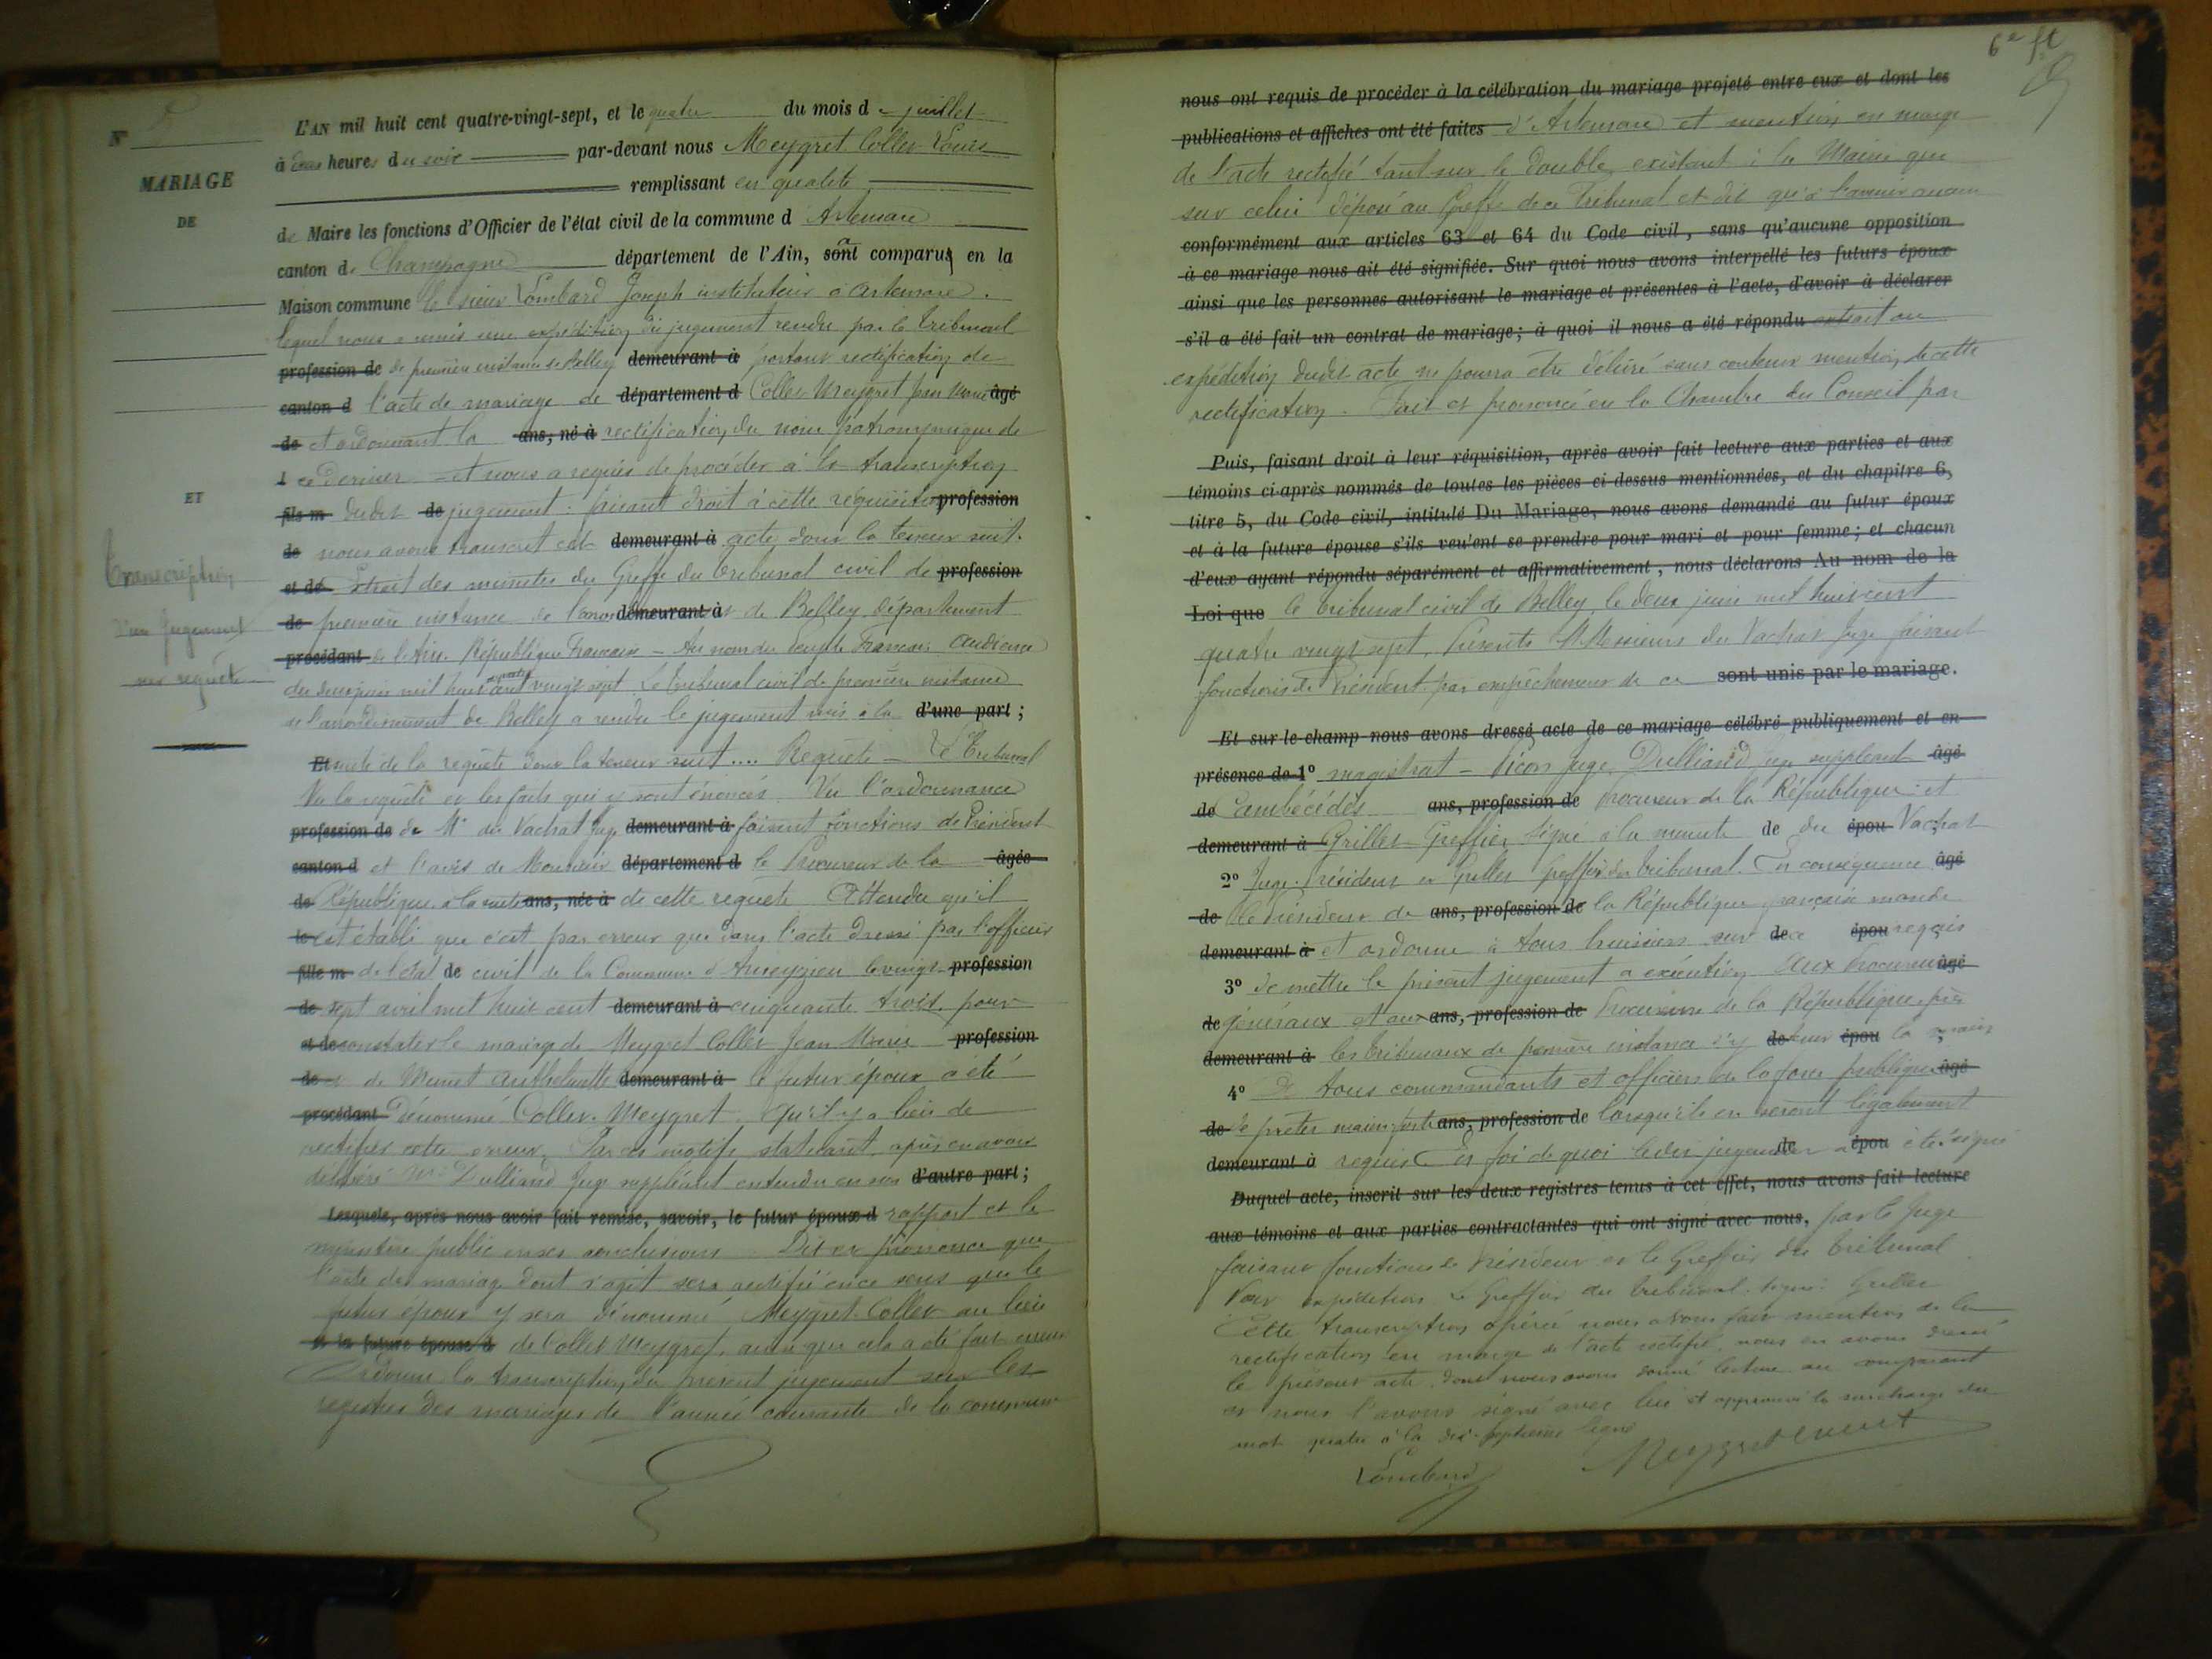 6e ft
N°
MARIAGE
DE
ET
Transcription
d'un jugement
sur requête
L'AN mil huit cent quatre-vingt-sept, et le quatre du mois de juillet
à deux heures du soir par-devant nous Meygret Collet Louis
remplissant en qualité
de Maire les fonctions d'Officier de l'état civil de la commune d'Artemare
canton de Champagne département de l'Ain, sont comparus en la
Maison commune le sieur Lombard Joseph instituteur à Artemare.
lequel nous a remis une expédition du jugement rendu par le tribunal
profession de de première instance de Belley demeurant à portant rectification de
canton d l'acte de mariage de département d Collet Meygret Jean Marie âgé
de et ordonnant la ans, né à rectification du nom patronymique de
l ce dernier et nous a requis de procéder à la transcription
fils m dudit de jugement : faisant droit à cette réquisition profession
de nous avons transcrit cet demeurant à acte dont la teneur suit.
et de Extrait des minutes du Greffe du tribunal civil de profession
de première instance de l'arron demeurant à de Belley département
procédant de l'Ain. République Française - Au nom du Peuple Français Audience
du deux juin mil huit cent quatre vingt sept Le tribunal civil de première instance
de l'arrondissement de Belley a rendu le jugement mis à la d'une part ;
Et suite de la requête dont la teneur suit .... Requête - Le Tribunal
Vu la requête et les faits qui y sont énoncés Vu l'ordonnance
profession de de Mr du Vachat Juge demeurant à faisant fonctions de Président
canton d et l'avis de Monsieur département d le Procureur de la âgée
de République à la suite ans, née à de cette requête Attendu qu'il
est établi que c'est par erreur que dans l'acte dressé par l'officier
fille m de l'état de civil de la Commune d'Ameyzieu le vingt profession
de sept avril mil huit cent demeurant à cinquante trois pour
et de constater le mariage de Meygret Collet Jean Marie profession
de et de Munet Anthelmette demeurant à le futur époux a été
procédant dénommé Collet-Meygret. Qu'il y a lieu de
rectifier cette erreur. Par ces motifs statuant, après en avoir
délibéré Mr Dulliand Juge suppléant entendu en son d'autre part ;
Lesquels, après nous avoir fait remise, savoir, le futur époux d rapport et le
ministère public en ses conclusions Dit et prononce que
l'acte de mariage dont s'agit sera rectifié en ce sens que le
futur époux y sera dénommé Meygret-Collet au lieu
et la future épouse d de Collet Meygret, ainsi que cela a été fait erreur
Ordonne la transcription du présent jugement sur les
registres des mariages de l'année courante de la commune
nous ont requis de procéder à la célébration du mariage projeté entre eux et dont les
publications et affiches ont été faites d'Artemare et mention en marge
de l'acte rectifié tant sur le double existant à la Mairie que
sur celui déposé au Greffe de ce Tribunal et dit qu'à l'avenir aucun
conformément aux articles 63 et 64 du Code civil, sans qu'aucune opposition
à ce mariage nous ait été signifiée. Sur quoi nous avons interpellé les futurs époux
ainsi que les personnes autorisant le mariage et présentes à l'acte, d'avoir à déclarer
s'il a été fait un contrat de mariage ; à quoi il nous a été répondu extrait ou
expédition dudit acte ne pourra être délivré sans contenir mention de cette
rectification. Fait et prononcé en la Chambre du Conseil par
Puis, faisant droit à leur réquisition, après avoir fait lecture aux parties et aux
témoins ci-après nommés de toutes les pièces ci-dessus mentionnées, et du chapitre 6,
titre 5, du Code civil, intitulé Du Mariage, nous avons demandé au futur époux
et à la future épouse s'ils veulent se prendre pour mari et pour femme ; et chacun
d'eux ayant répondu séparément et affirmativement, nous déclarons Au nom de la
Loi que le tribunal civil de Belley le deux juin mil huit cent
quatre vingt sept. Présents M. Messieurs du Vachat Juge faisant
fonctions de Président par empêchement de ce sont unis par le mariage.
Et sur-le-champ nous avons dressé acte de ce mariage célébré publiquement et en
présence de 1° magistrat - Juge Dulliand juge suppléant âgé
de Cambécédès ans, profession de procureur de la République : et
demeurant à Grillet Greffier. Signé à la minute de du épou Vachat
2° Juge Président et Grillet Greffier du tribunal. En conséquence âgé
de le Président de ans, profession de la République française mande
demeurant à et ordonne à tous huissiers sur de ce épou requis
3° de mettre le présent jugement à exécution Aux Procureurs âgé
de généraux et aux ans, profession de Procureurs de la République près
demeurant à les tribunaux de première instance d'y de tenir épou la main
4° De tous commandants et officiers de la force publique âgé
de de prêter main forte ans, profession de lorsqu'ils en seront légalement
demeurant à requis En foi de quoi ledit jugement de a épou été signé
Duquel acte, inscrit sur les deux registres tenus à cet effet, nous avons fait lecture
aux témoins et aux parties contractantes qui ont signé avec nous, par le Juge
faisant fonctions de Président et le Greffier du tribunal
Pour expédition Le Greffier du tribunal. Signé : Grillet
Cette transcription opérée nous avons fait mention de la
rectification en marge de l'acte rectifié. nous en avons dressé
le présent acte, dont nous avons donné lecture au comparant
et nous l'avons signé avec lui et approuvé la surcharge du
mot quatre à la dix-septième ligne
Lombard